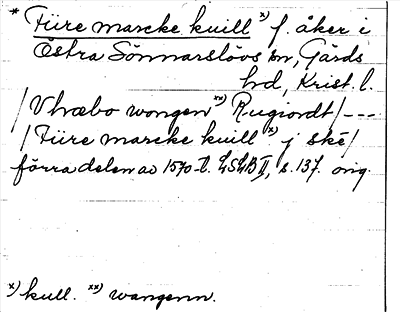 * Fiire marcke kuill x) f. åker i
Östra Sönnarslövs sn, Gärds
hd, Krist. l.
/ Vhæbo wongen xx) Rugiordt / ---
/ Fiire marcke kuill x) j ske /
förra delen av 1570-t. LSLB II, s. 137. orig.
x) kull. xx) wangenn.